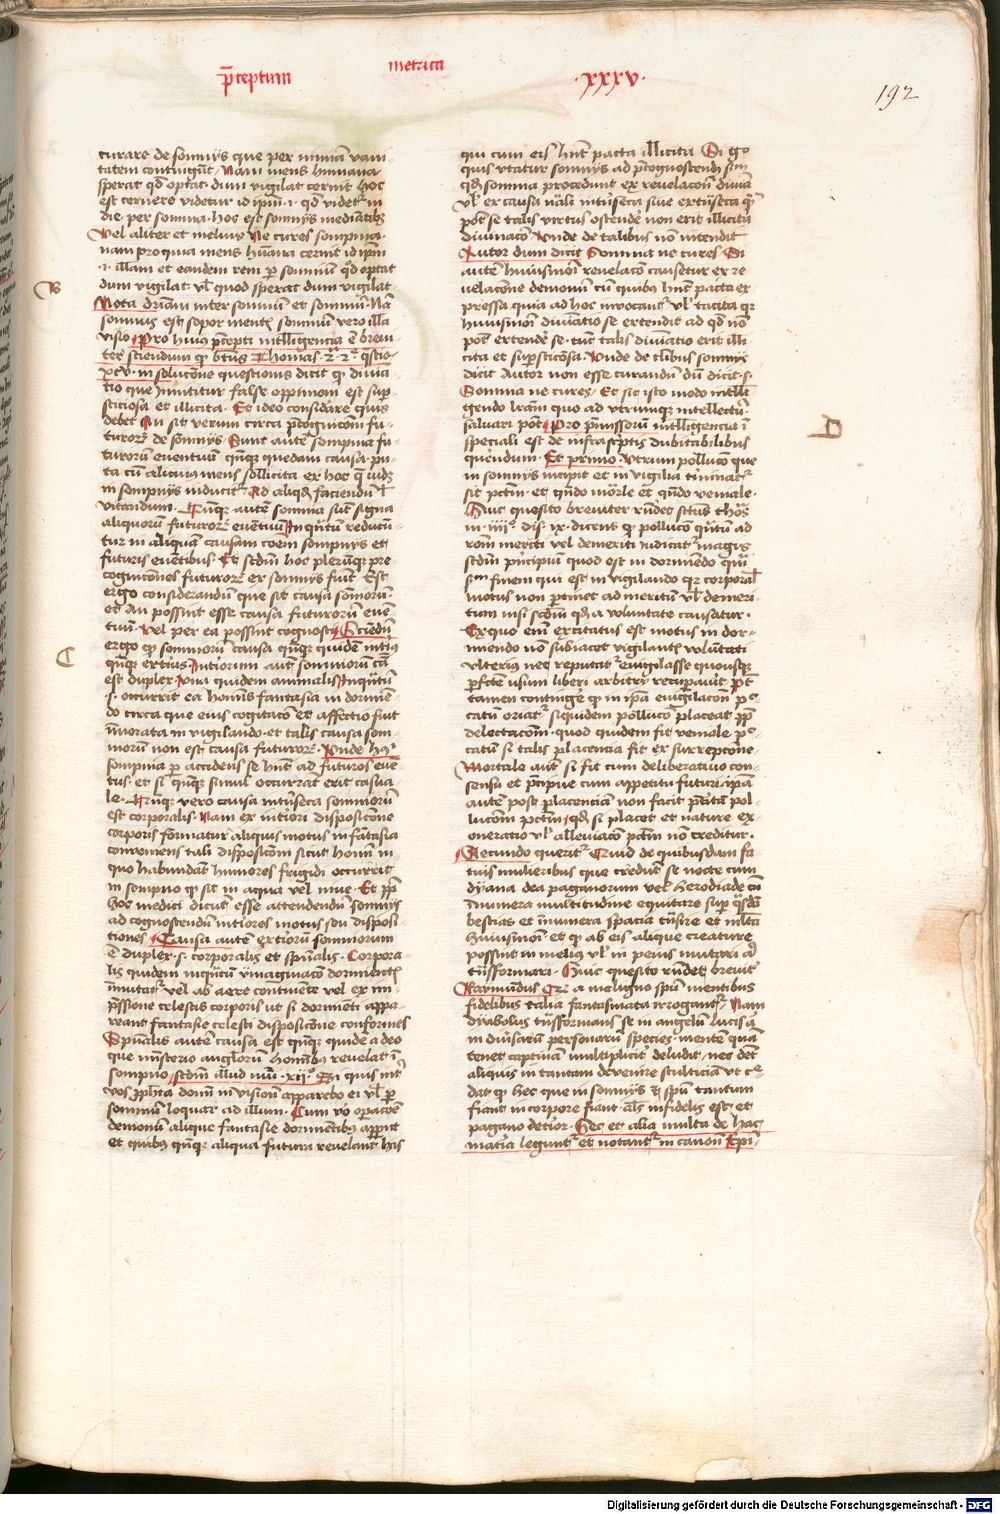 p̄ceptum metrica ·xxxv·
192
curare de somnijs que per nimiā vani
tatem contingūt Nam mens humana
sperat qd optat dum vigilat cernit hoc
est cernere videtur id ipm̄ .i. qd videtr in
die per somnia hos est somnijs mediātibꝫ
Vel aliter et melius Ne cures sompnia
nam pro quia mens hūana cernit id ipm̄
.i. illam et eandem rem ꝑ somniū qd optat
dum vigilat vl̄ quod sperat dum vigilat
B
Nota driam inter somnum et somniū Nā
somnus est sopor mentis somniū vero illa
visio Pro huius p̄cepti intelligencia ē brevi
ter sciendum ꝙ btūs Thomas 2ª 2e qstio
xcv in solucōne questionis dicit ꝙ divina
tio que innititur false oppinioni est sup
sticiosa et illicita Et ideo considare quis
debet An sit verum circa p̄cognicōm fu-
turorꝫ de somnijs Sunt autē sompnia fu-
turorū eventuum qnqꝫ quedam causa pu
ta cū alicuius mens sollicita ex hoc q̄ vidꝫ
in sompnijs inducitr Ad aliqd faciendū l̄
vitandum Qunqꝫ autē somnia sūt signa
aliquorū futurorꝫ eventuū Inqntūm reducū-
tur in aliquam causam coem sompnijs et
futuris eventibus Et scdm̄ hoc plerūqꝫ pre
cognicōnes futurorꝫ ex somnijs fiūt Est
ergo considerandū que sit causa somniorū
et An possint esse causa futurorum even
tuū Vel per ea possint cognosci Sciendū
C
ergo ꝙ somniorū causa qnqꝫ quidē intius
qnqꝫ exterius Intiorum aut somniorū cā
est duplex Una quidem animalis Inqntūm
.s. occurrit ea hominis fantasia in dormiē
do circa que eius cogitaco et affectio fuit
īmorata in vigilando et talis causa som
niorū non est causa futurorꝫ Unde hec
sompnia ꝑ accidens se hnt ad futuros evē
tus et si qnqꝫ simul occurrāt erit casua
le Qūnqꝫ vero causa intinseca somniorū
est corporalis Nam ex intiori disposicōne
corporis formatur aliquis motus in fātasia
conveniens tali disposicōni sicut homī in
quo habundāt humores frigidi occurrit
in sompno ꝙ sit in aqua vel nive Et ꝓp
hoc medici dicūt esse attendendū somnijs
ad cognoscendū intiores motus seu disposi
tiones Causa autē extiorū somniorum
ē duplex .s. corporalis et spūalis Corpora
lis quidem inqntūm ymaginaco dormientis
īmutatr vel ab aere continente vel ex im
pressione celestis corporis ut si dormiēti appa
reant fantasie celesti disposicōne conformes
Spūalis autē causa est qnqꝫ quidē a deo
que ministerio angelorū hominibꝫ revelat in
sompno scdm̄ illud nūi xijº Si quis int̄
vos propheta dom̄ in visione apparebo ei vl̄ ꝑ
somniū loquar ad illum Cum vo opacōe
demonū alique fantasie dormientibꝫ appnt
et quibꝫ qnqꝫ aliqua futura revelant his
qui cum eis hnt pacta illicita Si go
quis utatur somnijs ad p̄cognoscendū sim
qd somnia procedunt ex revelacōn divina
vl̄ ex causa nāli intinseca sive extinseca qntū
pōt se talis virtus ostendē non erit illicita
divinaco Unde de talibus nō intendit
Autor dum dicit Somnia ne cures Si
autē huiusmōi revelaco causetur ex re
velacōne demonum cū quibꝫ hnt pacta ex
pressa quia ad hoc invocantr vl̄ tacita qr
huiusmōi divinatio se extendit ad qd nō
pōt extendē se tūc talis divinatio erit illi
cita et supsticosa Unde de tlibus somnijs
dicit Autor non esse curandū dū dicit .s.
Somnia ne cures Et sic isto modo intelli
gendo lrām quo ad utrumqꝫ intellectū
salvari pōt Pro pmissorū intelligencia ī
D
speciali est de infrascriptis dubitabilibus
querendum Et primo Utrum pollucō que
in somnijs incipit et in vigilia tminatr
sit pctm̄ et qndo mōrle et qndo veniale
Huic quesito breviter rndet sctus thos
in iiijº dis ix dicens ꝙ pollucō qntūm ad
rōm meriti vel demeriti iudicatr magis
scdm̄ principiū quod est in dormiēdo qm̄
scdm finem qui est in vigilando qr corporal̄
motus non pertinet ad meritū vl̄ demeri
tum nisi scdm̄ qd a voluntate causatur
Ex quo enī excitatus est motus in dor-
miendo nō subiacet vigilantis volūtati
ulterius nec reputatr evigilasse quousqꝫ
perfcte usum liberi arbitrij recuperavit pōt
tamen contingē ꝙ in ipa evigilacōn pec
catū oriatr siquidem pollucō placeat ꝓp
delectacōm quod quidem fit veniale pec
catū si talis placencia fit ex surrepcōne
Mortale aut si fit cum deliberativo con-
sensu et p̄cipue cum appetitu futuri ipa
autē post placenciā non facit p̄teitā pol-
lucōm pctm̄ qd si placet et nature ex-
oneratio vl̄ alleviaco pctm̄ non creditur
Secundo queritr Quid de quibusdam fa
tuis mulieribus que credūt se nocte cum
dyana dea paganorum vel herodiade cū
īnumera multitudine equitare sup qsdā
bestias et īnumera spacia tūsire et mlta
huiusmōi et ꝙ ab eis alique creature
possint in melius vl̄ in peius mutari aut
tūsformari Huic quesito rndet brevitr
Raymūdus Qr a maligno spū mentibus
fidelibus talia fantasmata irrogantr Nam
dyabolus tūsformans se in angelū lucis
in diūsarū personarū species mentē quā
tenet captivam multiplicitr deludit nec dēt
aliquis in tantam devenire stulticiam ut cre
dat ꝙ hec que in somnijs et spū tantum
fiant in corpore fiant als infidelis est et
pagano detior Hec et alia multa de hac
matia leguntr et notantr in canon Epi
Digitalisierung gefördert durch die Deutsche Forschungsgemeinschaft - DFG